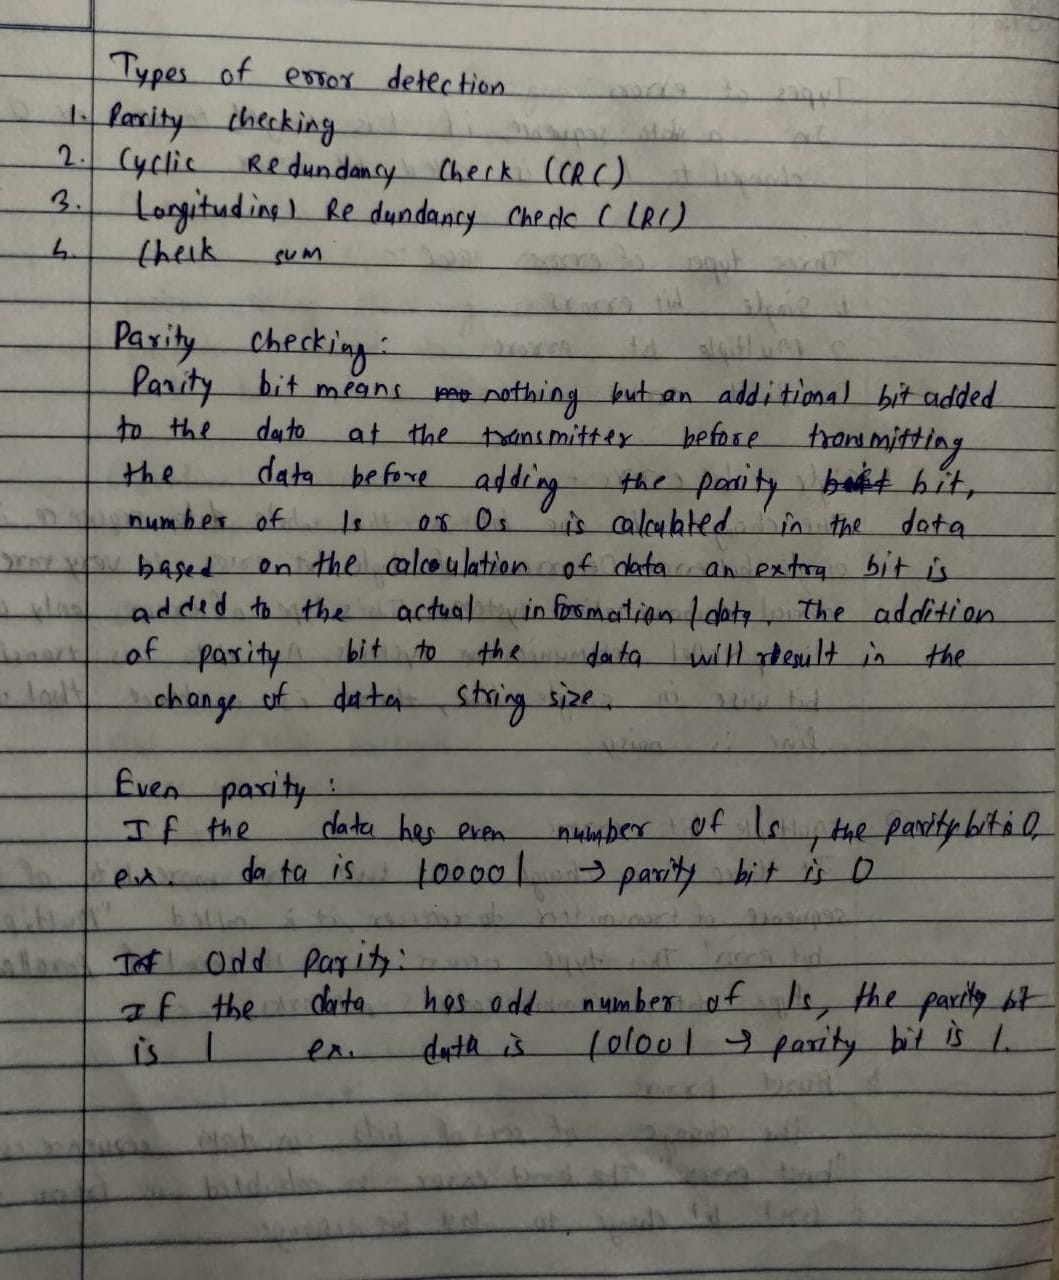 Types of error detection
1. Parity checking
2. Cyclic Redundancy Check (CRC)
3. Longitudinal Redundancy Check (LRC)
4. Check sum
Parity checking:
Parity bit means nothing but an additional bit added
to the data at the transmitter before transmitting
the data before adding the parity bit,
number of 1s or 0s is calculated in the data
based on the calculation of data an extra bit is
added to the actual information / data. The addition
of parity bit to the data will result in the
change of data string size.
Even parity:
If the data has even number of 1s, the parity bit is 0,
ex. data is 100001 → parity bit is 0
Odd Parity:
If the data has odd number of 1s, the parity bt
is 1 ex. data is 101001 → parity bit is 1.